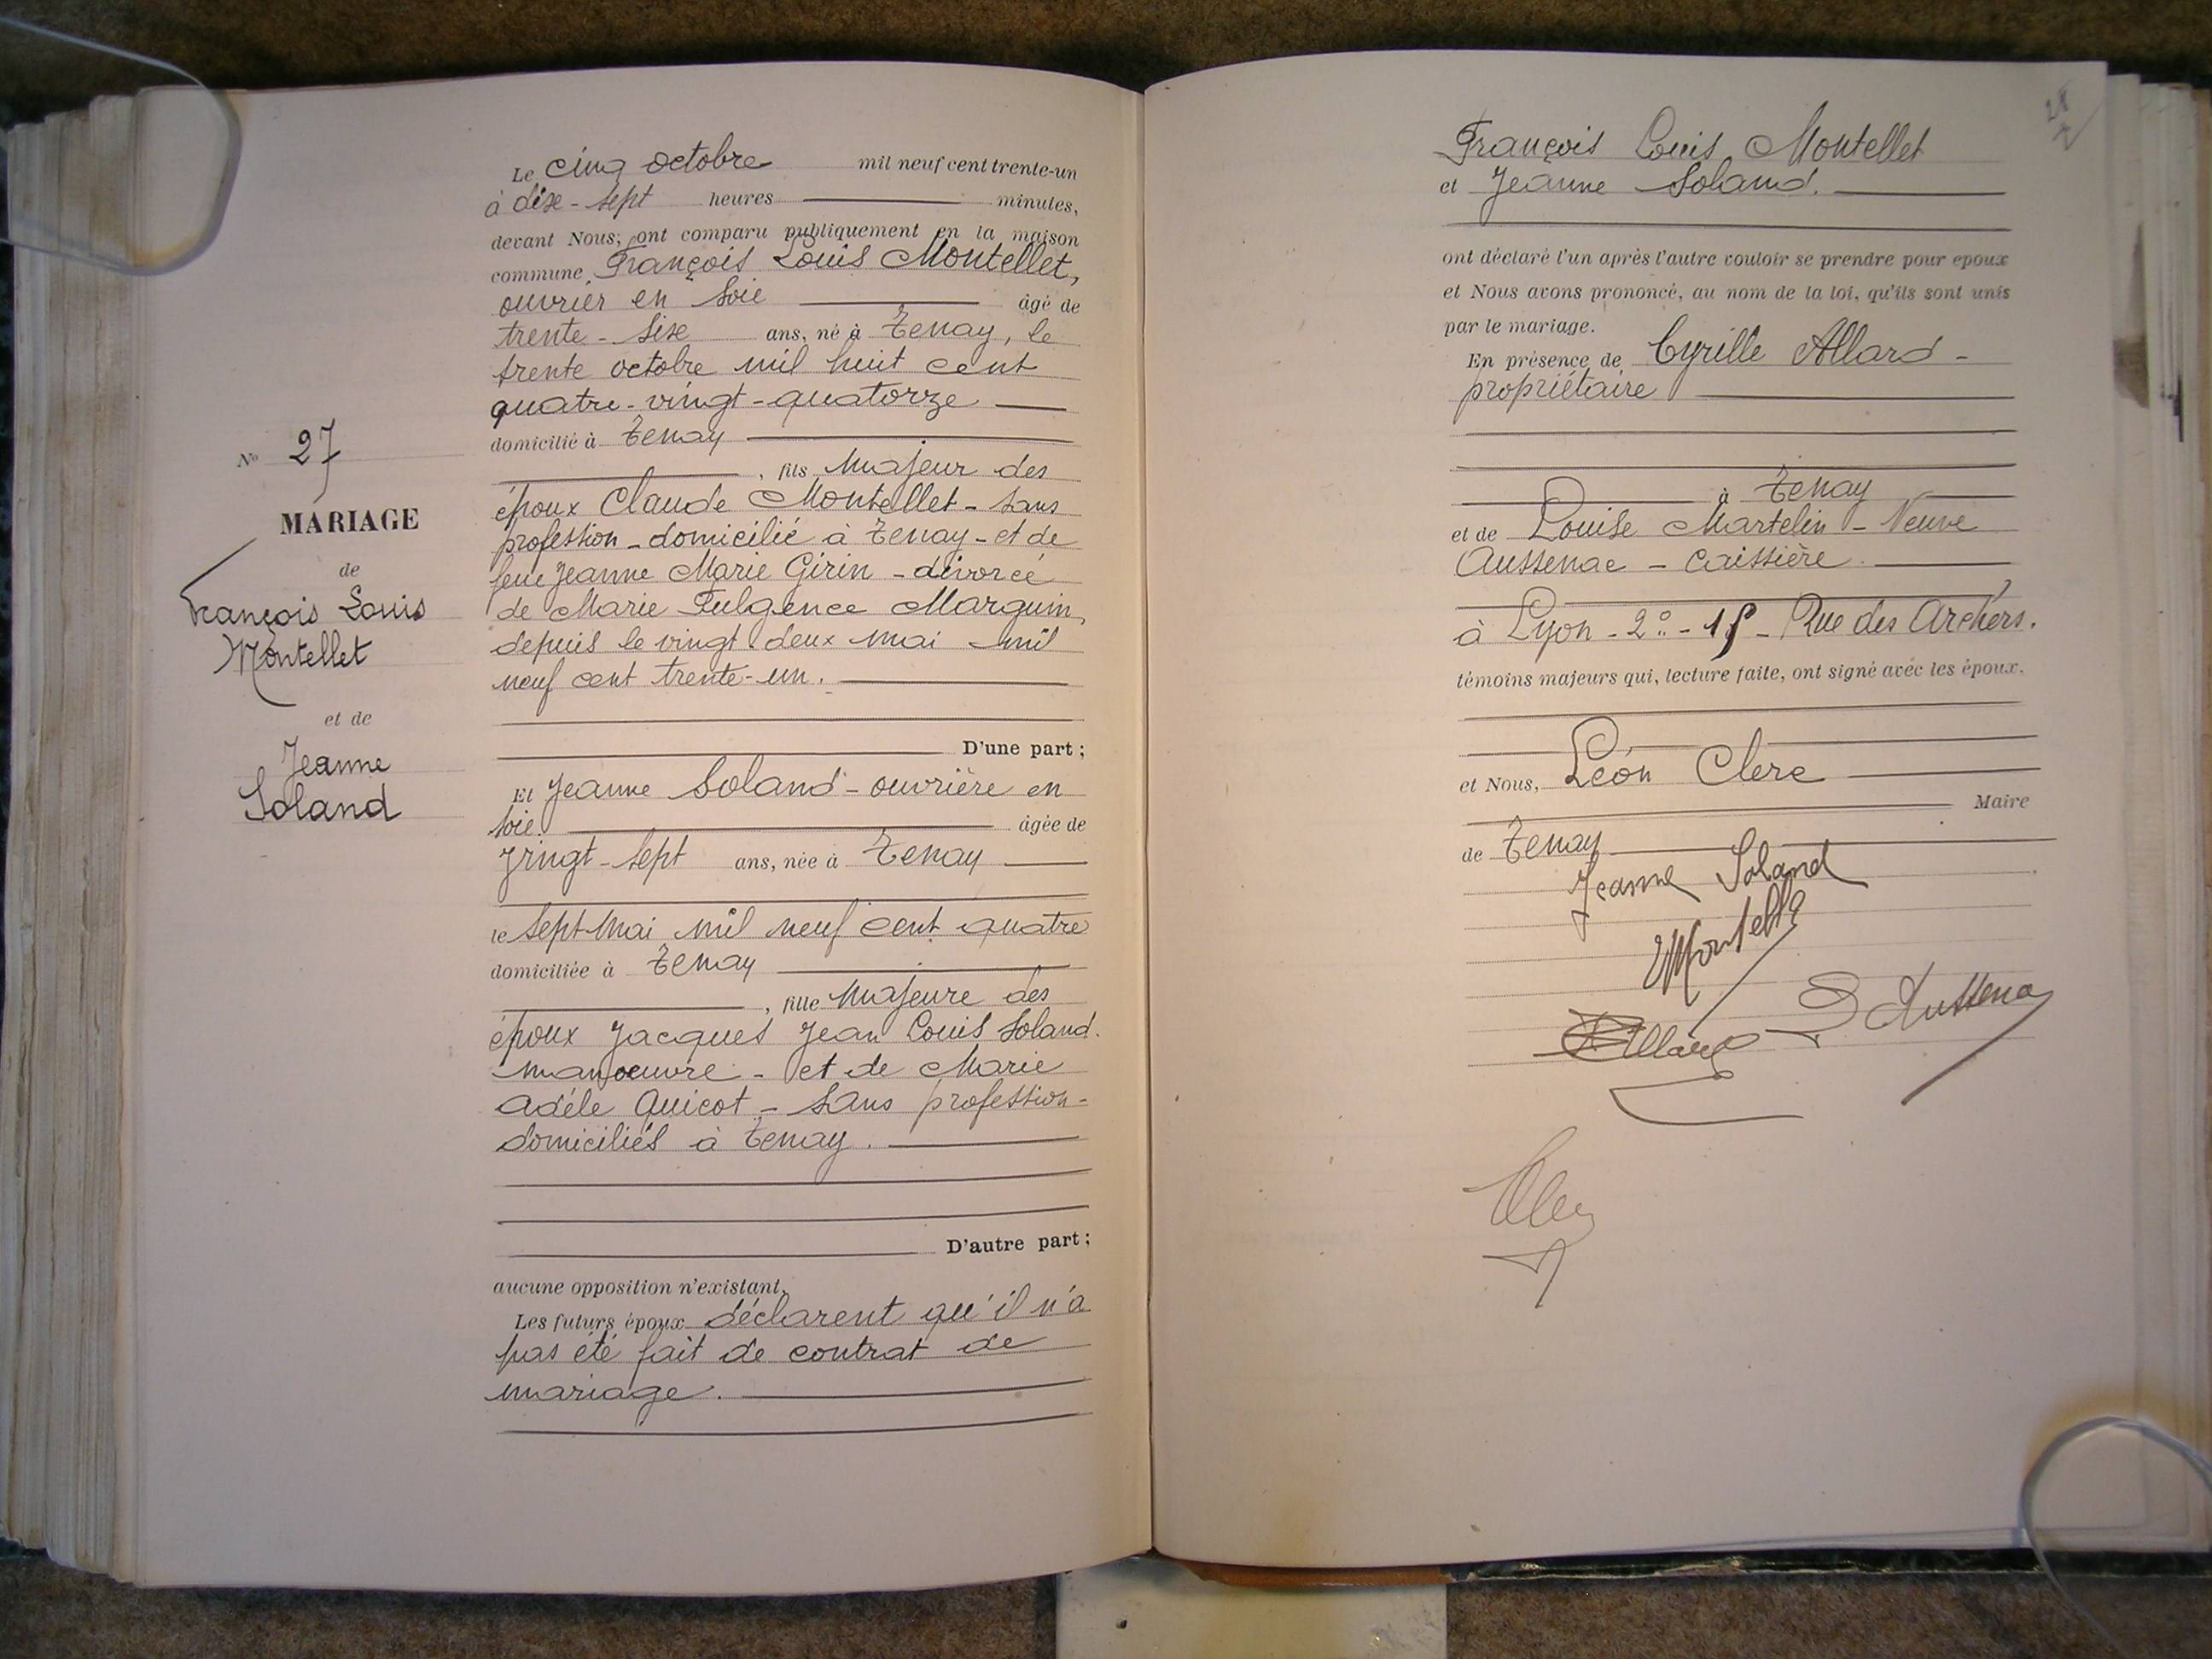 N° 27
MARIAGE
de
François Louis
Montellet
et de
Jeanne
Soland
Le cinq octobre mil neuf cent trente-un
à dixe-sept heures minutes,
devant Nous, ont comparu publiquement en la maison
commune François Louis Montellet,
ouvrier en soie âgé de
trente-sixe ans, né à Tenay, le
trente octobre mil huit cent
quatre-vingt-quatorze
domicilié à Tenay
, fils majeur des
époux Claude Montellet - sans
profession - domicilié à Tenay - et de
feue Jeanne Marie Girin - divorcé
de Marie Fulgence Marguin,
depuis le vingt deux mai mil
neuf cent trente-un.
D'une part ;
Et Jeanne Soland - ouvrière en
soie. âgée de
vingt-sept ans, née à Tenay
le sept mai mil neuf cent quatre
domiciliée à Tenay
, fille majeure des
époux Jacques Jean Louis Soland.
manoeuvre - et de Marie
Adèle Quicot - sans profession -
domiciliés à Tenay.
D'autre part ;
aucune opposition n'existant.
Les futurs époux déclarent qu'il n'a
pas été fait de contrat de
mariage.
28
François Louis Montellet
et Jeanne Soland.
ont déclaré l'un après l'autre vouloir se prendre pour epoux
et Nous avons prononcé, au nom de la loi, qu'ils sont unis
par le mariage.
En présence de Cyrille Allard -
propriétaire
à Tenay
et de Louise Martelin - Veuve
Aussenac - caissière.
à Lyon - 2° - Rue des Archers.
témoins majeurs qui, lecture faite, ont signé avec les époux.
et Nous, Léon Clerc
Maire
de Tenay
Jeanne Soland
Montellet
Allard
Aussenac